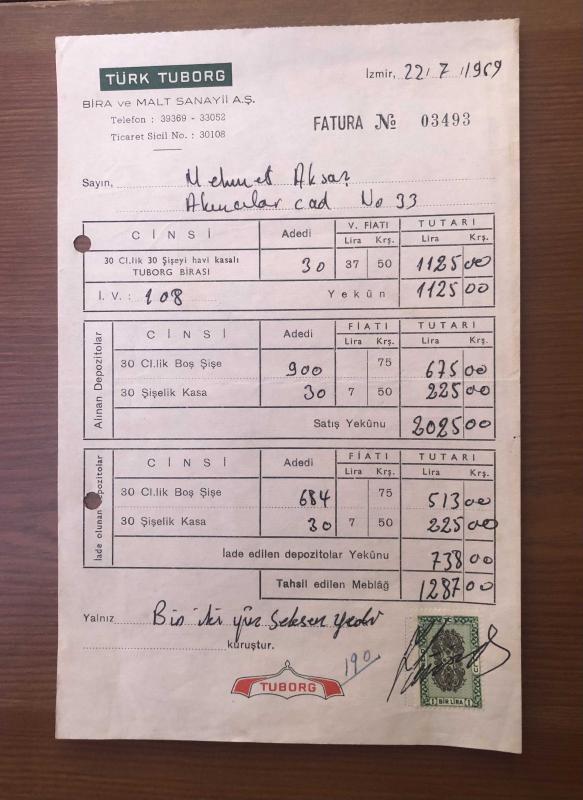 TÜRK TUBORG
BİRA ve MALT SANAYİİ A.Ş.
Telefon : 39369 - 33052
Ticaret Sicil No. : 30108
İzmir, 22/7/1969
FATURA № 03493
Sayın, Mehmet Aksar
Akıncılar cad No 33
CİNSİ Adedi V. FİATI TUTARI
Lira Krş. Lira Krş.
30 Cl.lik 30 Şişeyi havi kasalı
TUBORG BİRASI 30 37 50 1125 00
İ. V. : 108 Yekûn 1125 00
Alınan Depozitolar
CİNSİ Adedi FİATI TUTARI
Lira Krş. Lira Krş.
30 Cl.lik Boş Şişe 900 75 675 00
30 Şişelik Kasa 30 7 50 225 00
Satış Yekûnu 2025 00
İade olunan Depozitolar
CİNSİ Adedi FİATI TUTARI
Lira Krş. Lira Krş.
30 Cl.lik Boş Şişe 684 75 513 00
30 Şişelik Kasa 30 7 50 225 00
İade edilen depozitolar Yekûnu 738 00
Tahsil edilen Meblâğ 1287 00
Yalnız Bin iki yüz seksen yedi
kuruştur.
190
TUBORG
1 BİR LİRA 1